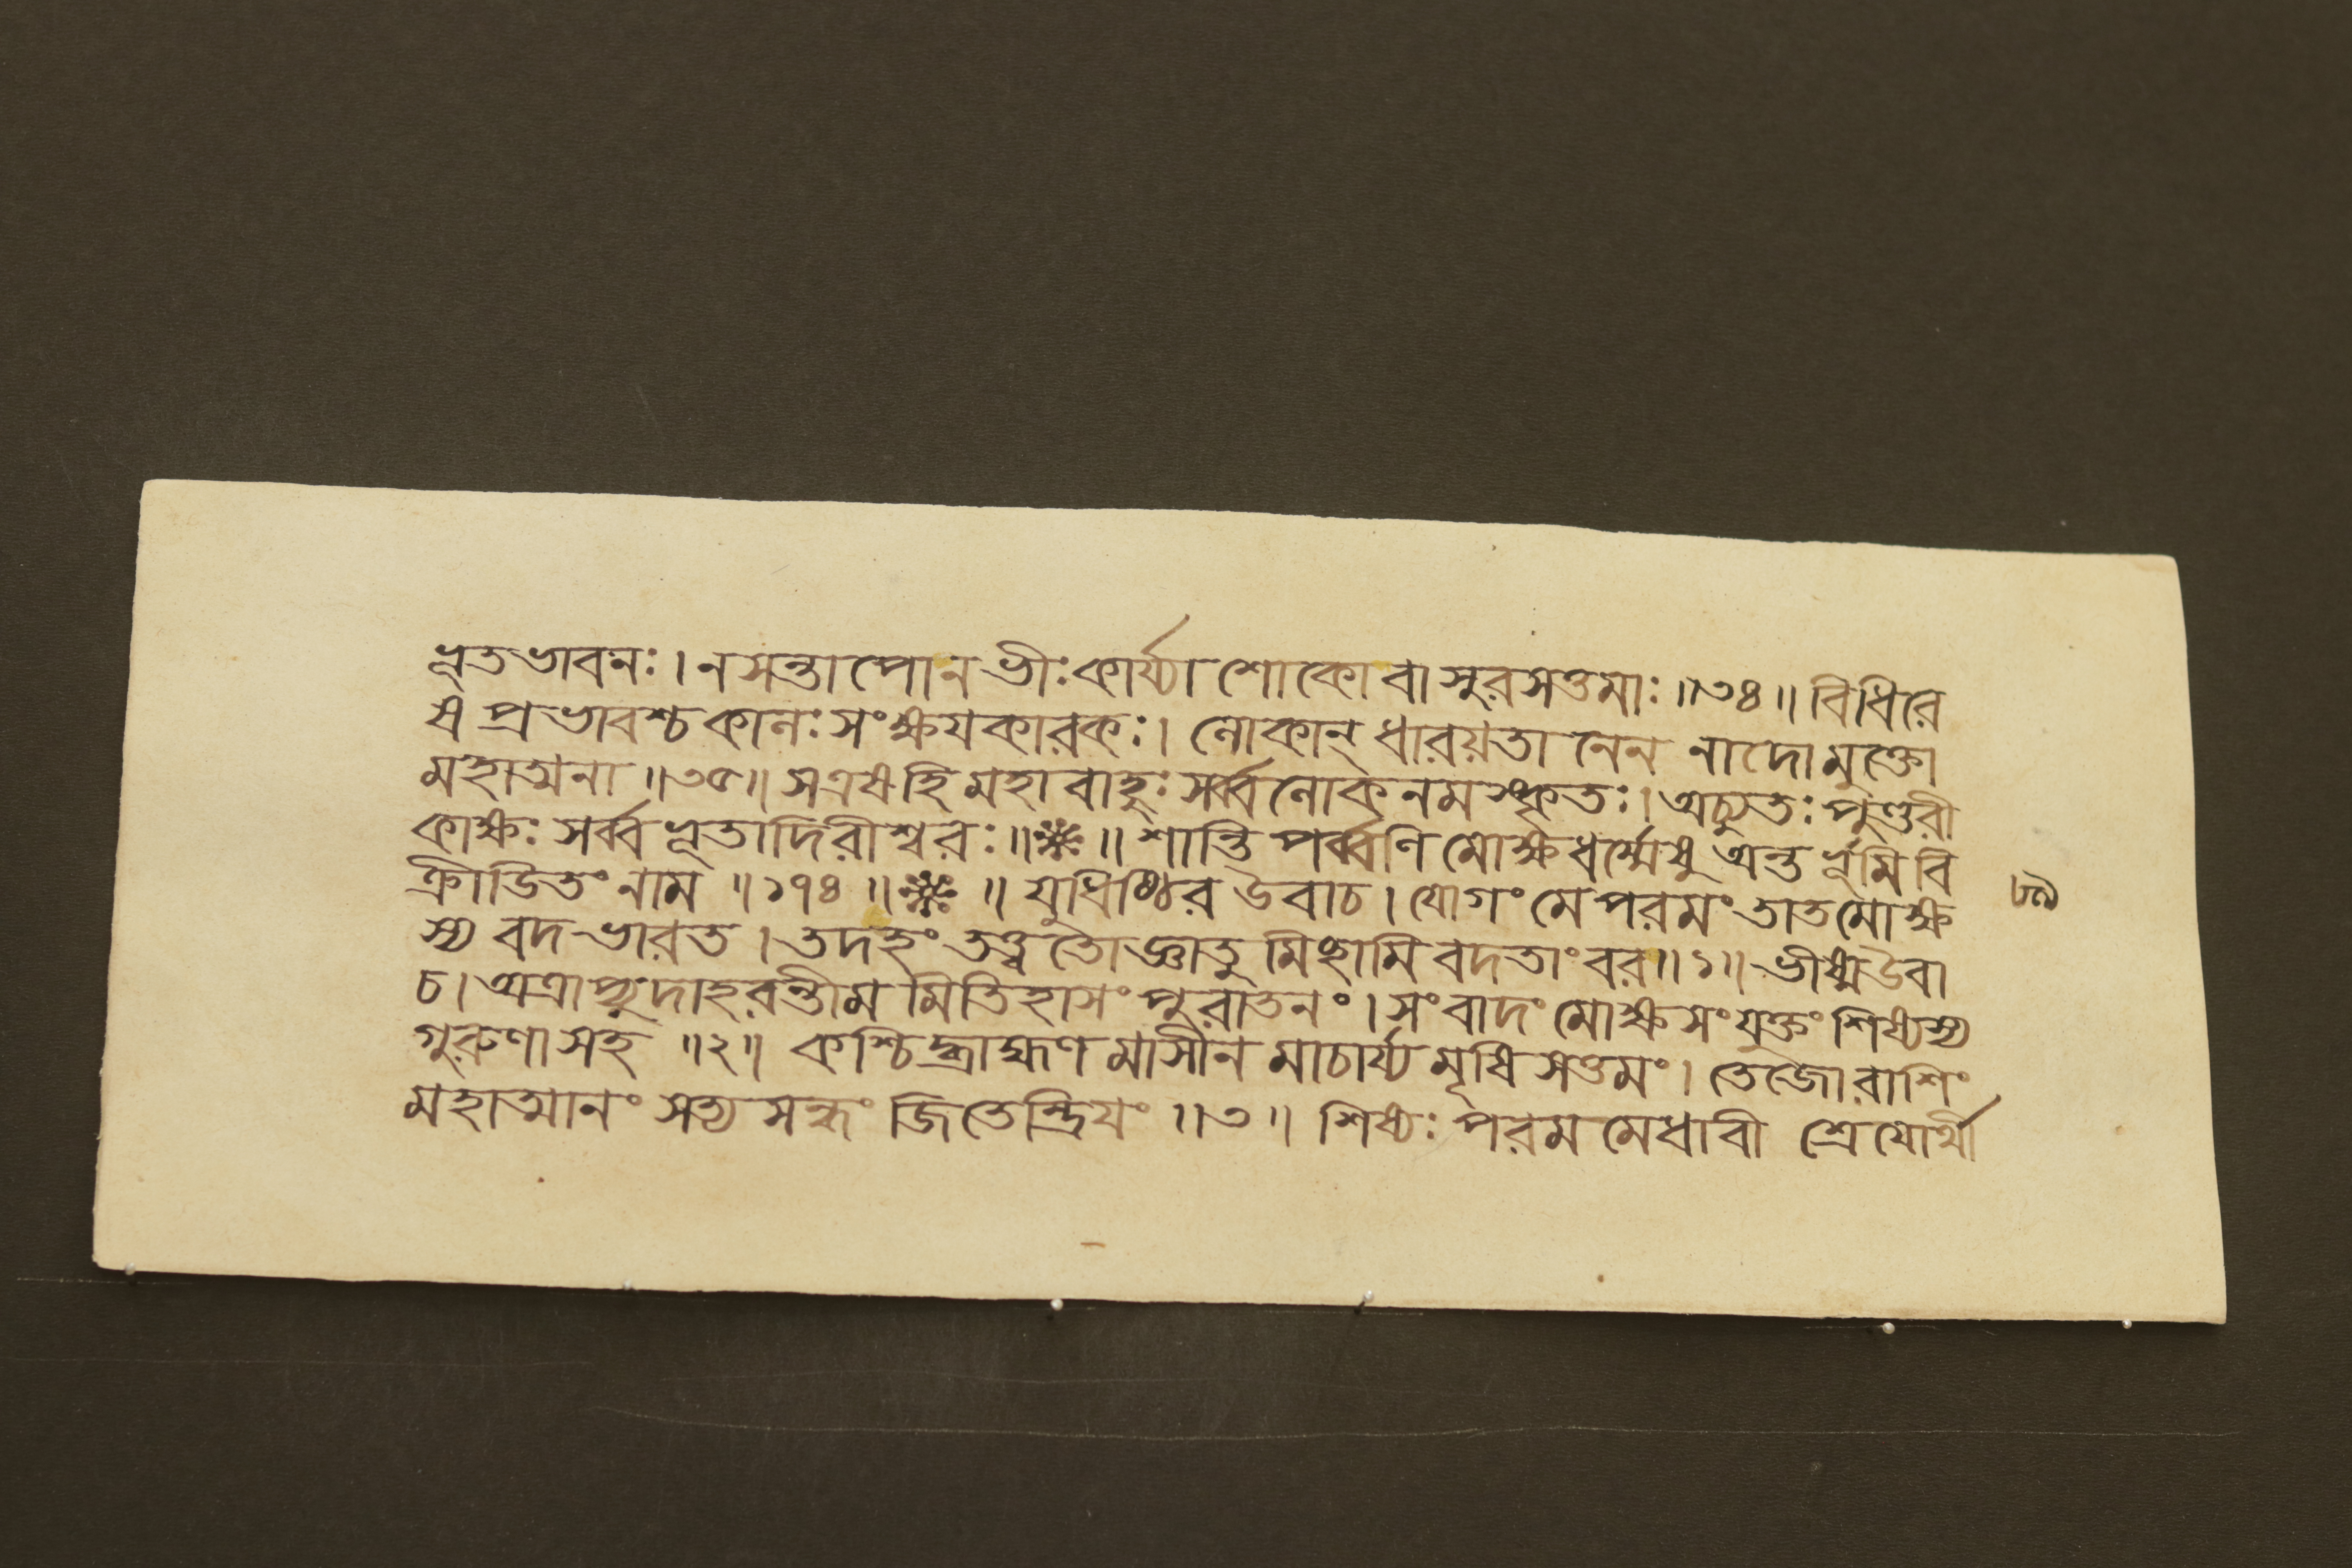 ভূতভাবনঃ। ন সন্তাপো ন ভীঃ কার্য্যা শোকো বা সুরসত্তমাঃ ॥৩৪॥ বিধিরে
ষ প্রভাবশ্চ কালঃ সংক্ষয়কারকঃ। লোকান্ ধারয়তা নেন নাদো মুক্তো
মহাত্মনা ॥৩৫॥ স এষ হি মহাবাহুঃ সর্ব্বলোকনমস্কৃতঃ। অচ্যুতঃ পুণ্ডরী
কাক্ষঃ সর্ব্বভূতাদিরীশ্বরঃ ॥❋॥ শান্তি পর্ব্বণি মোক্ষধর্ম্মেষু অন্তর্ভূমি বি
ক্রীডিতং নাম ॥১৭৪॥❋॥ যুধিষ্ঠির উবাচ। যোগং মে পরমং তাত মোক্ষ
স্য বদ ভারত। তদহং তত্ত্বতো জ্ঞাতু মিচ্ছামি বদতাংবর ॥১॥ ভীষ্ম উবা
চ। অত্রাপ্যুদাহরন্তীম মিতিহাসং পুরাতনং। সংবাদং মোক্ষসংযুক্তং শিষ্যস্য
গুরুণা সহ ॥২॥ কশ্চিদ্ব্রাহ্মণ মাসীন মাচার্য্য মৃষি সত্তমং। তেজোরাশিং
মহাত্মানং সত্য সন্ধং জিতেন্দ্রিয়ং ॥৩॥ শিষ্যঃ পরম মেধাবী শ্রেয়োর্থী
৮৯